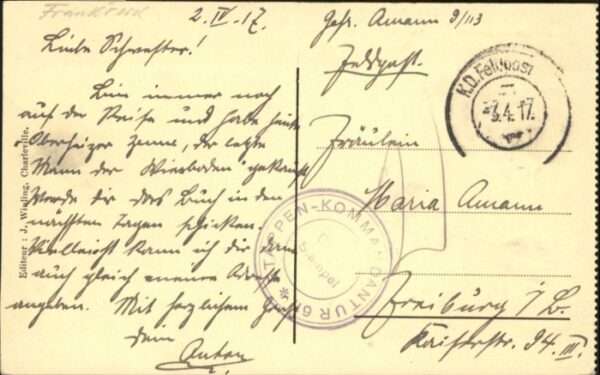 Frankreich
2. IV. 17.
Liebe Schwester!
Bin immer noch
auf der Reise und habe heute
"Oberheizer Zenne, der letzte
Mann der Wiesbaden" gekauft
Werde dir das Buch in den
nächsten Tagen schicken.
Vielleicht kann ich dir dann
auch gleich meine Adresse
angeben. Mit herzlichem Gruß
dein
Anton
Editeur : J. Wigling, Charleville.
Gefr. Amann 9/113
Feldpost.
K.D. Feldpost
-3.4.17.
Fräulein
Maria Amann
ETAPPEN-KOMMANDANTUR
Stempel
Freiburg i/B.
Kaiserstr. 94. III.